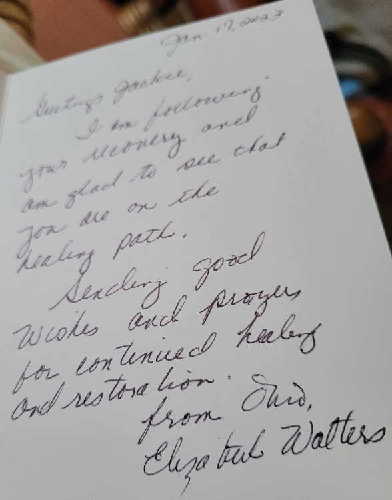 Jan 17, 2023
Greetings Jackie,
I am following
your recovery and
am glad to see that
you are on the
healing path.
Sending good
wishes and prayers
for continued healing
and restoration.
from Ohio,
Elizabeth Walters